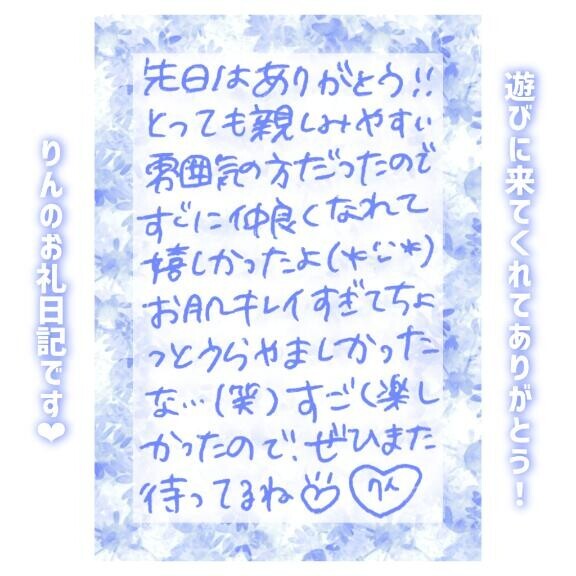 遊びに来てくれてありがとう！
先日はありがとう!!
とっても親しみやすい
雰囲気の方だったので
すぐに仲良くなれて
嬉しかったよ(*ˊᵕˋ*)
お肌キレイすぎてちょ
っとうらやましかった
な…(笑)すごく楽し
かったので、ぜひまた
待ってるね♡
りん
りんのお礼日記です❤